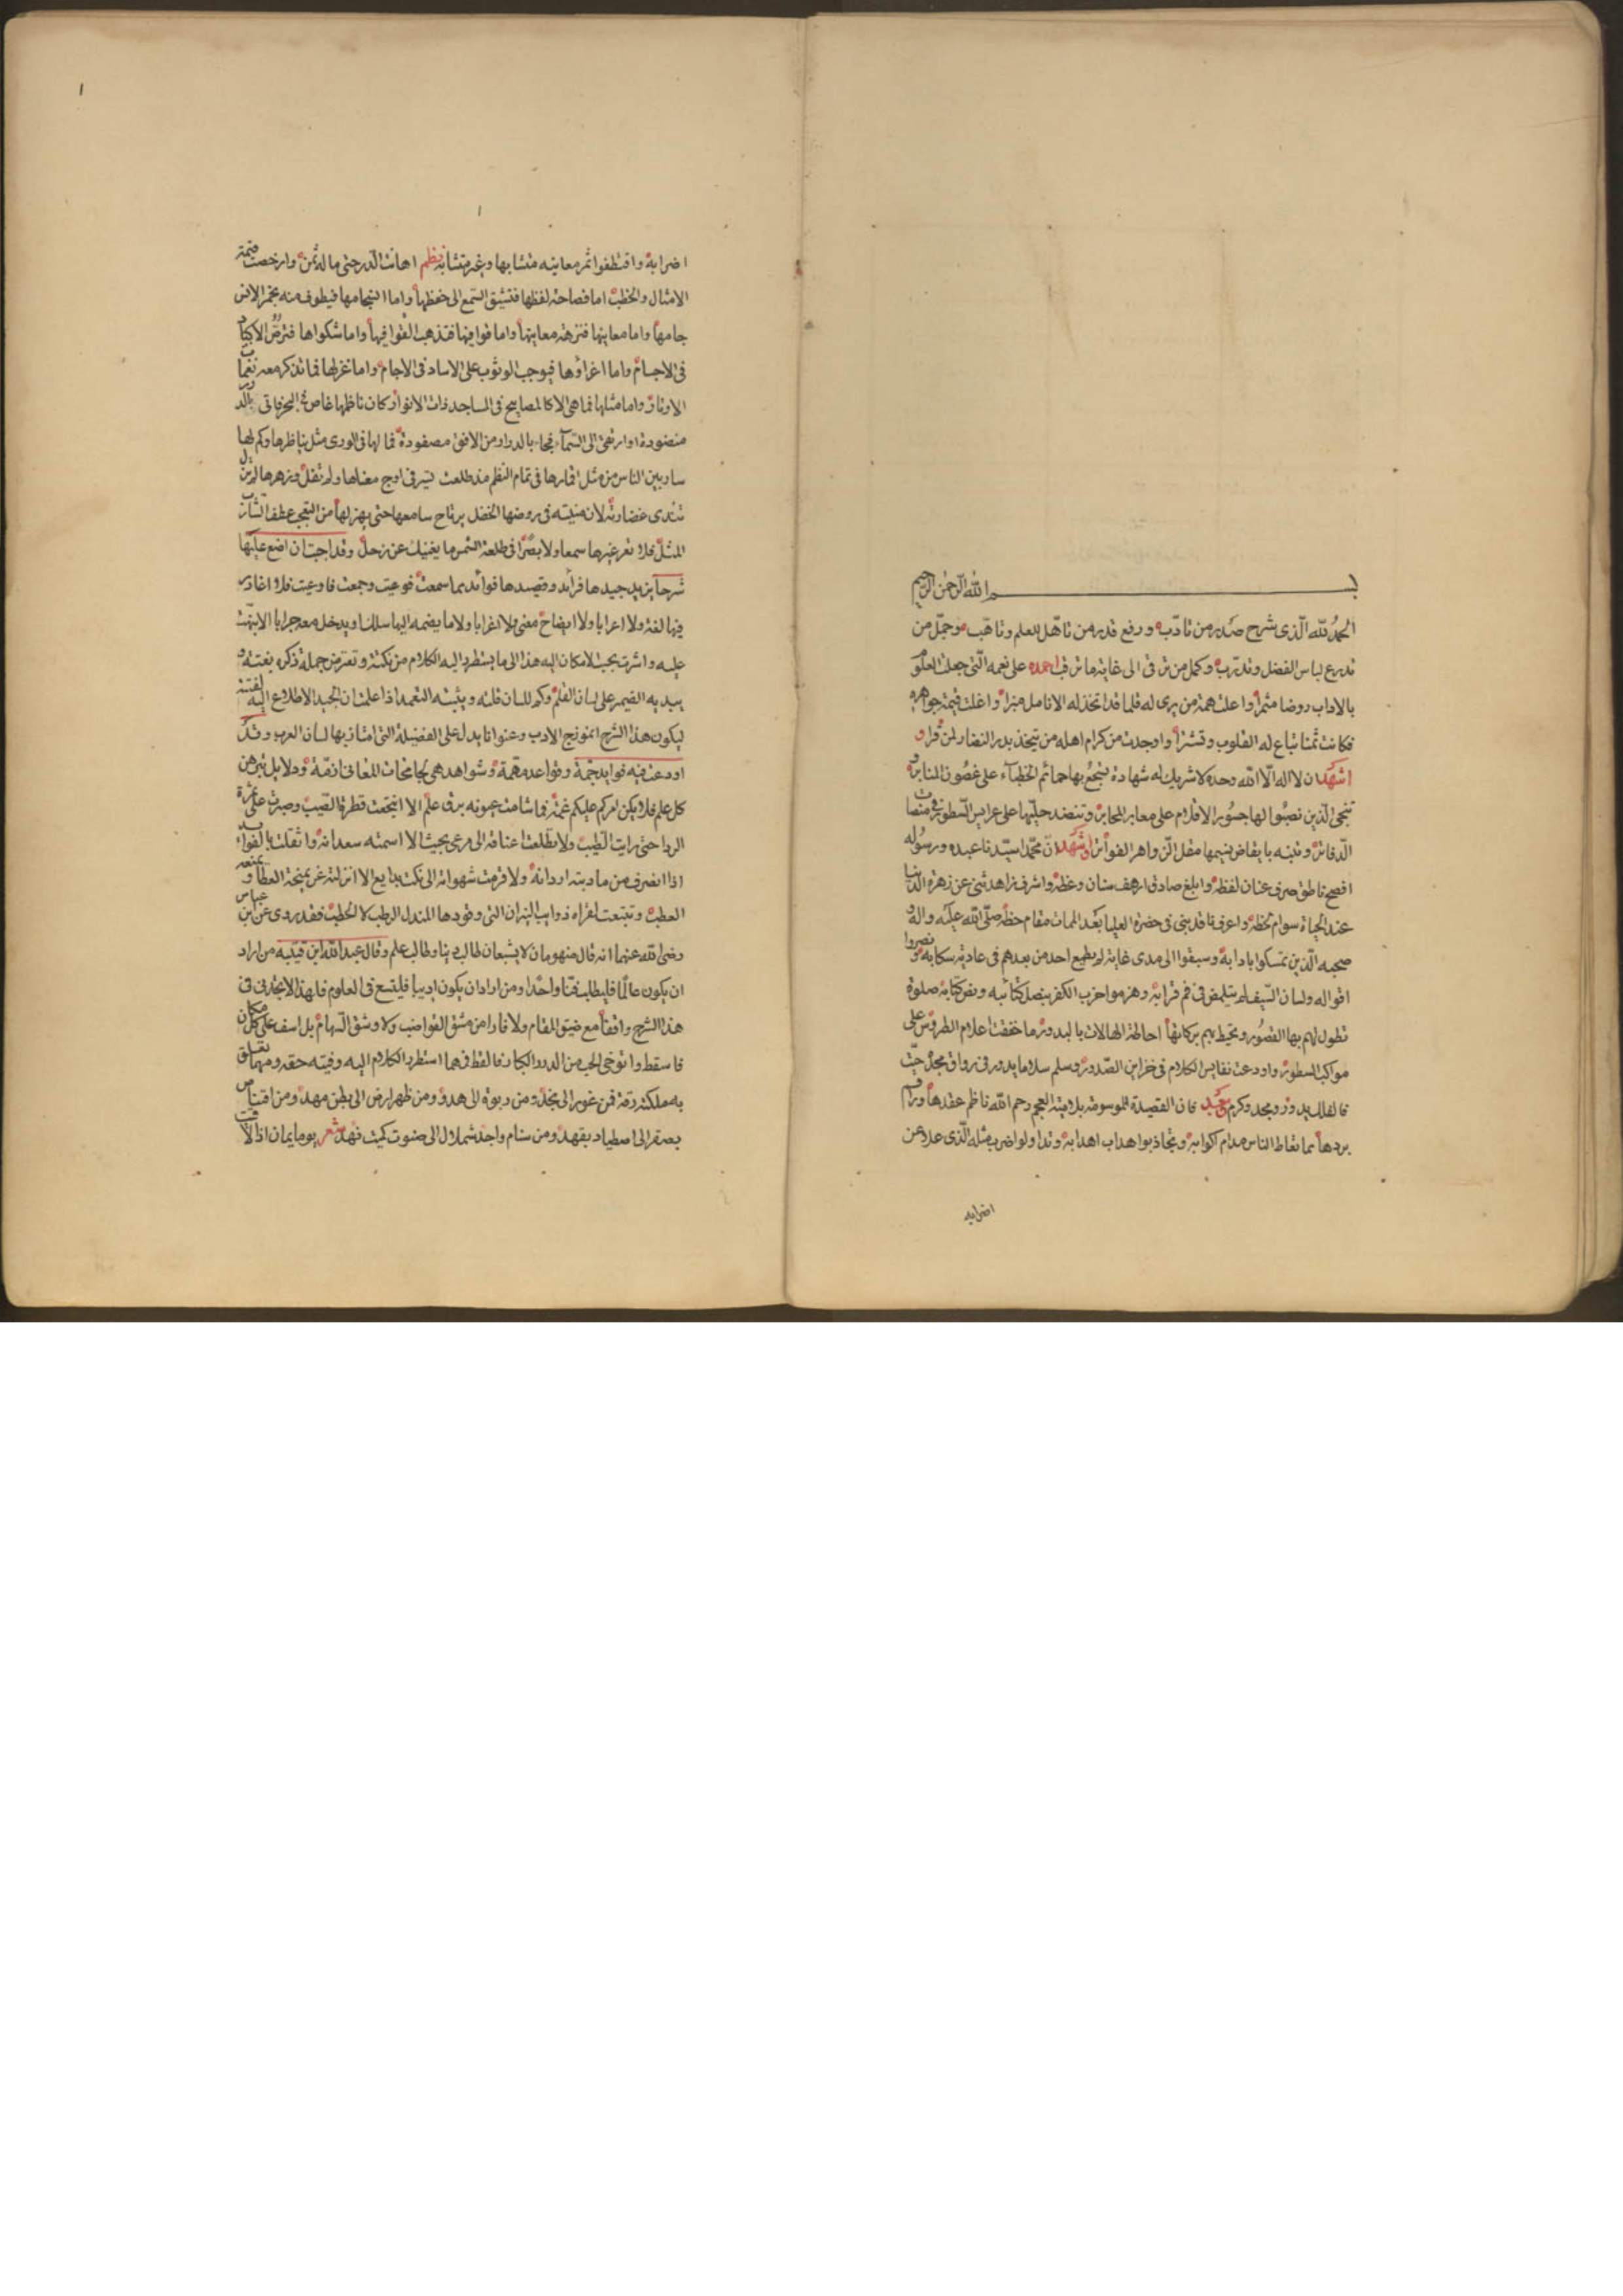 بسم الله الرحمن الرحيم
الحمد لله الذى شرح صدر من تادب ورفع قدر من تاهل للعلم وتاهب وجمل من
تدرع لباس الفضل وتدرب وكمل من ترقى الى غاية ما ترقب احمده على نعمه التى جعلت العلق
بالاداب روضا مثمرا واعلت همة من يرى له قلما قد اتخذ له الانامل منبرا واغلت قيمة جواهره
فكانت ثمنا تباع له القلوب وتشترا واوجدت من كرام اهله من يتخذ بدر النضار لمن قرا و
اشهد ان لا اله الا الله وحده لا شريك له شهادة يسجع بها حمائم الخطباء على غصون المنابر و
تنجى الذين نصبوا لها جسور الاقلام على معابر المحابر وتنضد حليها على عرايس السطور فى منصات
الدفاتر وتنبه بايقاض نسيمها مقل الزواهر الفواتر واشهد ان محمدا سيدنا عبده ورسوله
افصح ناطق صرف عنان لفظه وابلغ صادق ارهف سنان وعظه واشرف زاهد ثنى عن زهرة الدنيا
عند الحياة سوام لحظه واعرف ناقد بنى فى حضرة العليا بعد الممات مقام حظه صلى الله عليه واله و
صحبه الذين تمسكوا بادابه وسبقوا الى مدى غاية لم يطمع احد من بعدهم فى عادية سكابه ونصروا
اقواله ولسان السيف لم يتلمض فى فم قرابه وهزموا حزب الكفر بنصل كتائبه ونص كتابه صلوة
تطول لهم بها القصور وتحيط بهم بركاتها احاطة الهالات بالبدور ما خفقت اعلام الطروس على
مواكب السطور واودعت نفايس الكلام فى خزاين الصدور وسلم سلاما يدور فى رواق مجده حيث
فالفلك يدور ومجد وكرم وبعد فان القصيدة الموسومة بلامية العجم رحم الله ناظم عقدها وراقم
بردها مما تعاطا الناس مدام اكوابه وتجاذبوا هداب اهدابه وتداولوا ضرب مثله الذى عدا عن
اضرابه
اضرابه واقتطفوا ثمر معانيه متشابها وغير متشابه نظم اهانت الدر حتى ماله ثمن وارخصت قيمة
الامثال والخطب اما فصاحة لفظها فتشيق السمع الى حفظها واما انسجامها فيطوف منه بخمر الانس
جامها واما معانيها فنزهة معانيها واما قوافيها فتذهب القوا فيها واما شكواها فترض الاكباد
فى الاجسام واما اغراؤها فيوجب الوثوب على الاساد فى الاجام واما غزلها فما تذكر معه نغمات
الاوتار واما مثلها فما هى الا كالمصابيح فى المساجد ذات الانوار كان ناظمها غاص فى البحر فاتى بالدرر
منضودة او ارتقى الى السماء فجاء بالدرارى من الافق مصفودة فما لها فى الورى مثل يناظرها وكم لها
سار بين الناس من مثل اقمارها فى تمام النظم مذ طلعت تسير فى اوج معناها ولم تفل وزهرها لم يزل
تندى غضارته لان منبته فى روضها الخضل يرتاح سامعها حتى يهز لها من التعجب عطف الشارب
الثمل فلا تعر غيرها سمعا ولا بصرا فى طلعة الشمس ما يغنيك عن زحل وقد احببت ان اضع عليها
شرحا يزيد جيدها فرائد وقصيدها فوائد مما سمعت فوعيت وجمعت فاوعيت فلا اغادر
فيها لغة ولا اعرابا ولا ايضاح معنى ولا اغرابا ولا ما يضمه اليها سلك او يدخل معه جرابا الا نبهت
عليه واشرت بحيث الامكان اليه هذا الى ما يستطرد اليه الكلام من نكتة وتعترض جملة ذكره بغتة و
يبديه الضمير على لسان القلم وكم للسان فلتة ويثبته التعمد اذا علمت ان الجيد الاطلاع اليه لفتة
ليكون هذا الشرح انموذج الادب وعنوانا يدل على الفضيلة التى امتاز بها لسان العرب وقد
اودعت فيه فوايد جمة وقواعد مهمة وشواهد هى لجامحات المعانى ازمة ودلايل تبرهن
كل علم فلا يكن امركم عليكم غمة فما شامت عيونه برق علم الا انتجعت قطره الصيب وصبرت على غرة
الردا حتى رايت الطيب ولا تطلعت اعناقه الى مرعى بحيث الا اسمته سعدانه واثقلت بالفوايد
اذا انصرف من مادبته اردانه ولا قرمت شهواته الى نكت بدايع الا انزلته غريمنحة العطا ويمنعه
العطب وتتبعت لقراه ذوايب النيران التى وقودها المندل الرطب لا الحطب فقد روى عن ابن عباس
رضى الله عنهما انه قال منهومان لا يشبعان طالب دنيا وطالب علم وقال عبد الله ابن قتيبة من اراد
ان يكون عالما فليطلب فنا واحدا ومن اراد ان يكون اديبا فليتسع فى العلوم فلهذا لا تجدنى فى
هذا الشرح واقفا مع ضيق المقام ولا فارا من مشق القواضب ولا رشق السهام بل اسف على كل مكان
فاسقط واتوخى الحب من الدرر الكبار فالقط فمهما استطرد الكلام اليه وفيته حقه ومهما تعلق
به ملكته رقه فمن غور الى نجد ومن ربوة الى هدو ومن ظهر ارض الى بطن مهد ومن اقتناص
بصقر الى اصطياد بفهد ومن سنام واخد شملال الى صهوة كميت نهد شعر يوما يمان اذا لاقيت